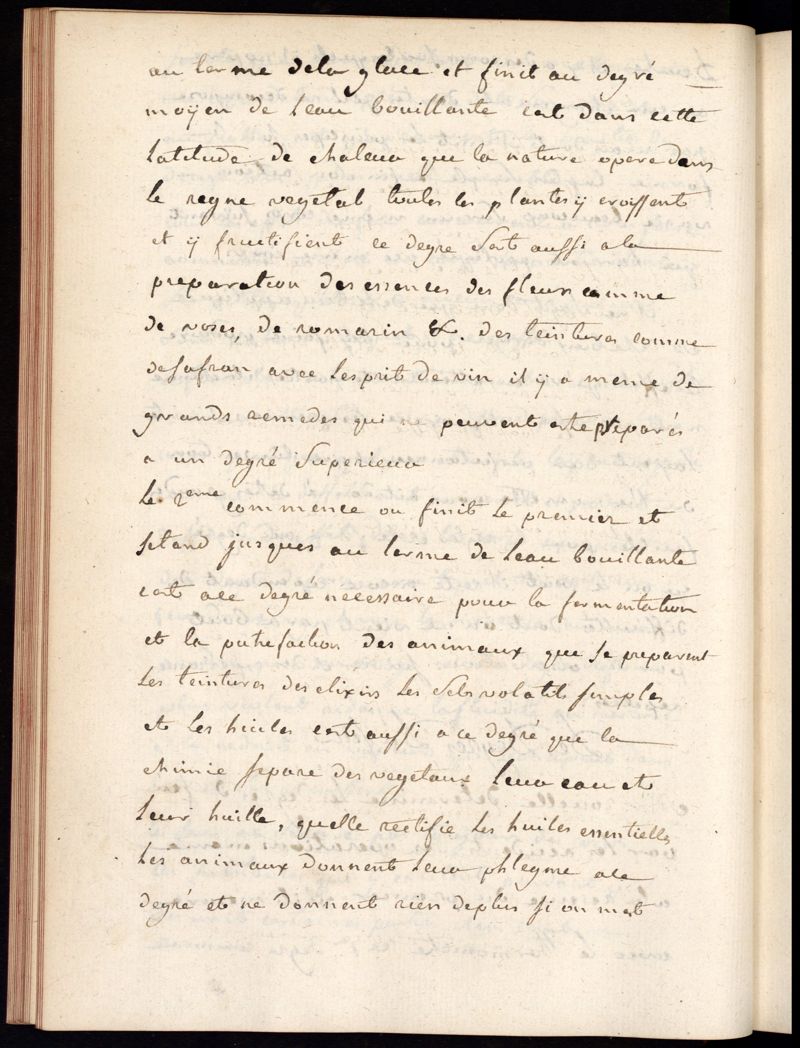 au terme dela glace et finit au degré
moÿen de leau bouillante cest dans cette
latitude de chaleur que la nature opere dans
le regne vegetal toutes les plantes ÿ croissent
et ÿ fructifient ce degré sert aussi a la
preparation des essences des fleurs comme
de roses, de romarin &c. des teintures comme
de safran avec lesprit de vin il ÿ a meme de
grands remedes qui ne peuvent estre preparés
a un degré superieur
le 2eme commence ou finit le premier et
setand jusques au terme de leau bouillante
cest a ce degré necessaire pour la fermentation
et la putrefaction des animaux que se preparent
les teintures des elixirs les sels volatils simples
et les huiles cest aussi a ce degré que la
chimie separe des vegetaux leur eau et
leur huille, quelle rectifie les huiles essentielles
les animaux donnent leur phlegme a ce
degré et ne donnent rien de plus si on met